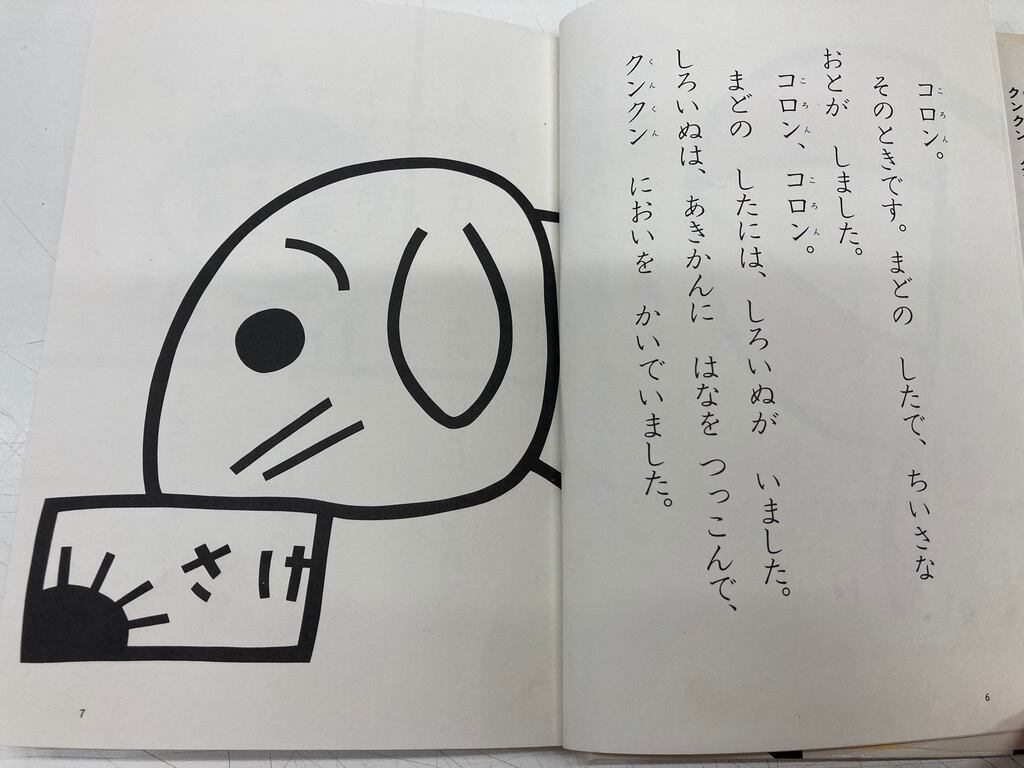 コロン。
そのときです。まどの　したで、ちいさな
おとが　しました。
コロン、コロン。
まどの　したには、しろいぬが　いました。
しろいぬは、あきかんに　はなを　つっこんで、
クンクン　においを　かいでいました。
6
さけ
7